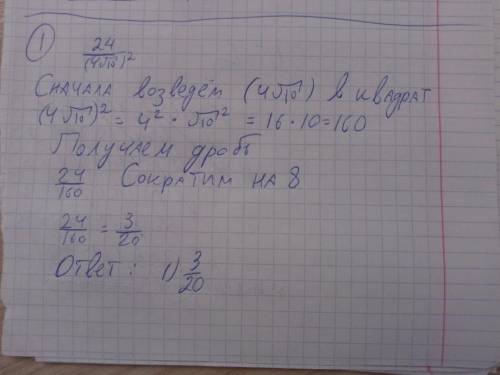 1
24/(4√10)²
Сначала возведём (4√10) в квадрат
(4√10)² = 4² · √10² = 16 · 10 = 160
Получаем дробь
24/160 Сократим на 8
24/160 = 3/20
Ответ: 1) 3/20